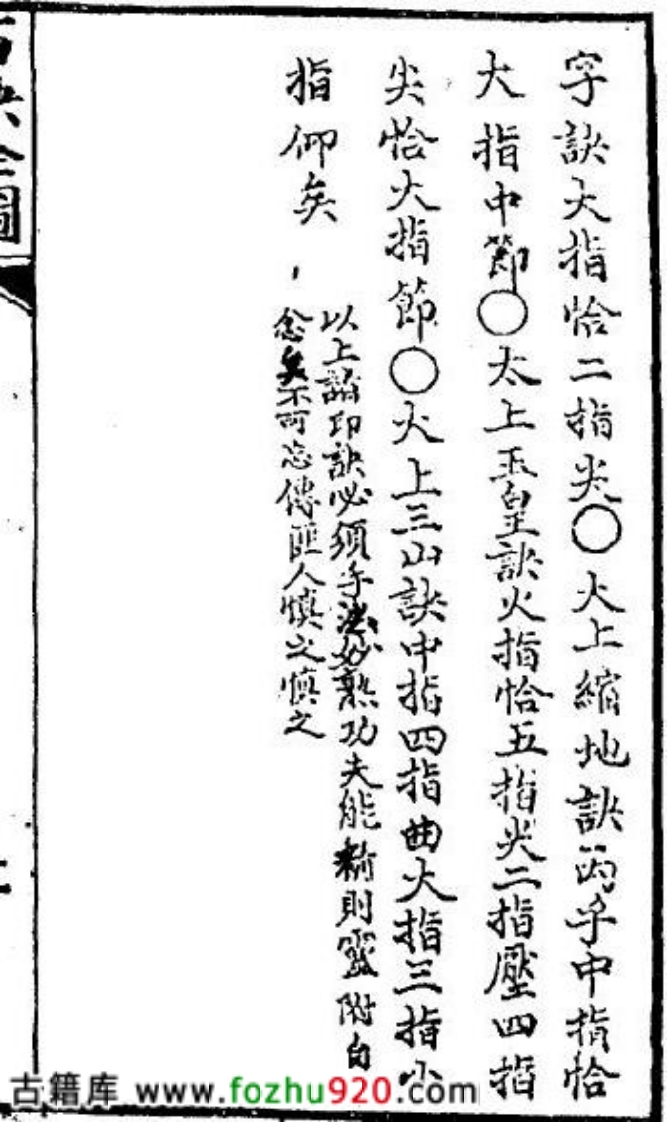 字訣大指恰二指尖〇太上縮地訣丙手中指恰
大指中節〇太上玉皇訣大指恰五指尖二指壓四指
尖恰大指節〇太上三山訣中指四指曲大指三指小
指仰矣
以上諸印訣必須手法妙熟功夫能精則靈附自
念矣不可忘傳匪人慎之慎之
全圖
古籍库 www.fozhu920.com